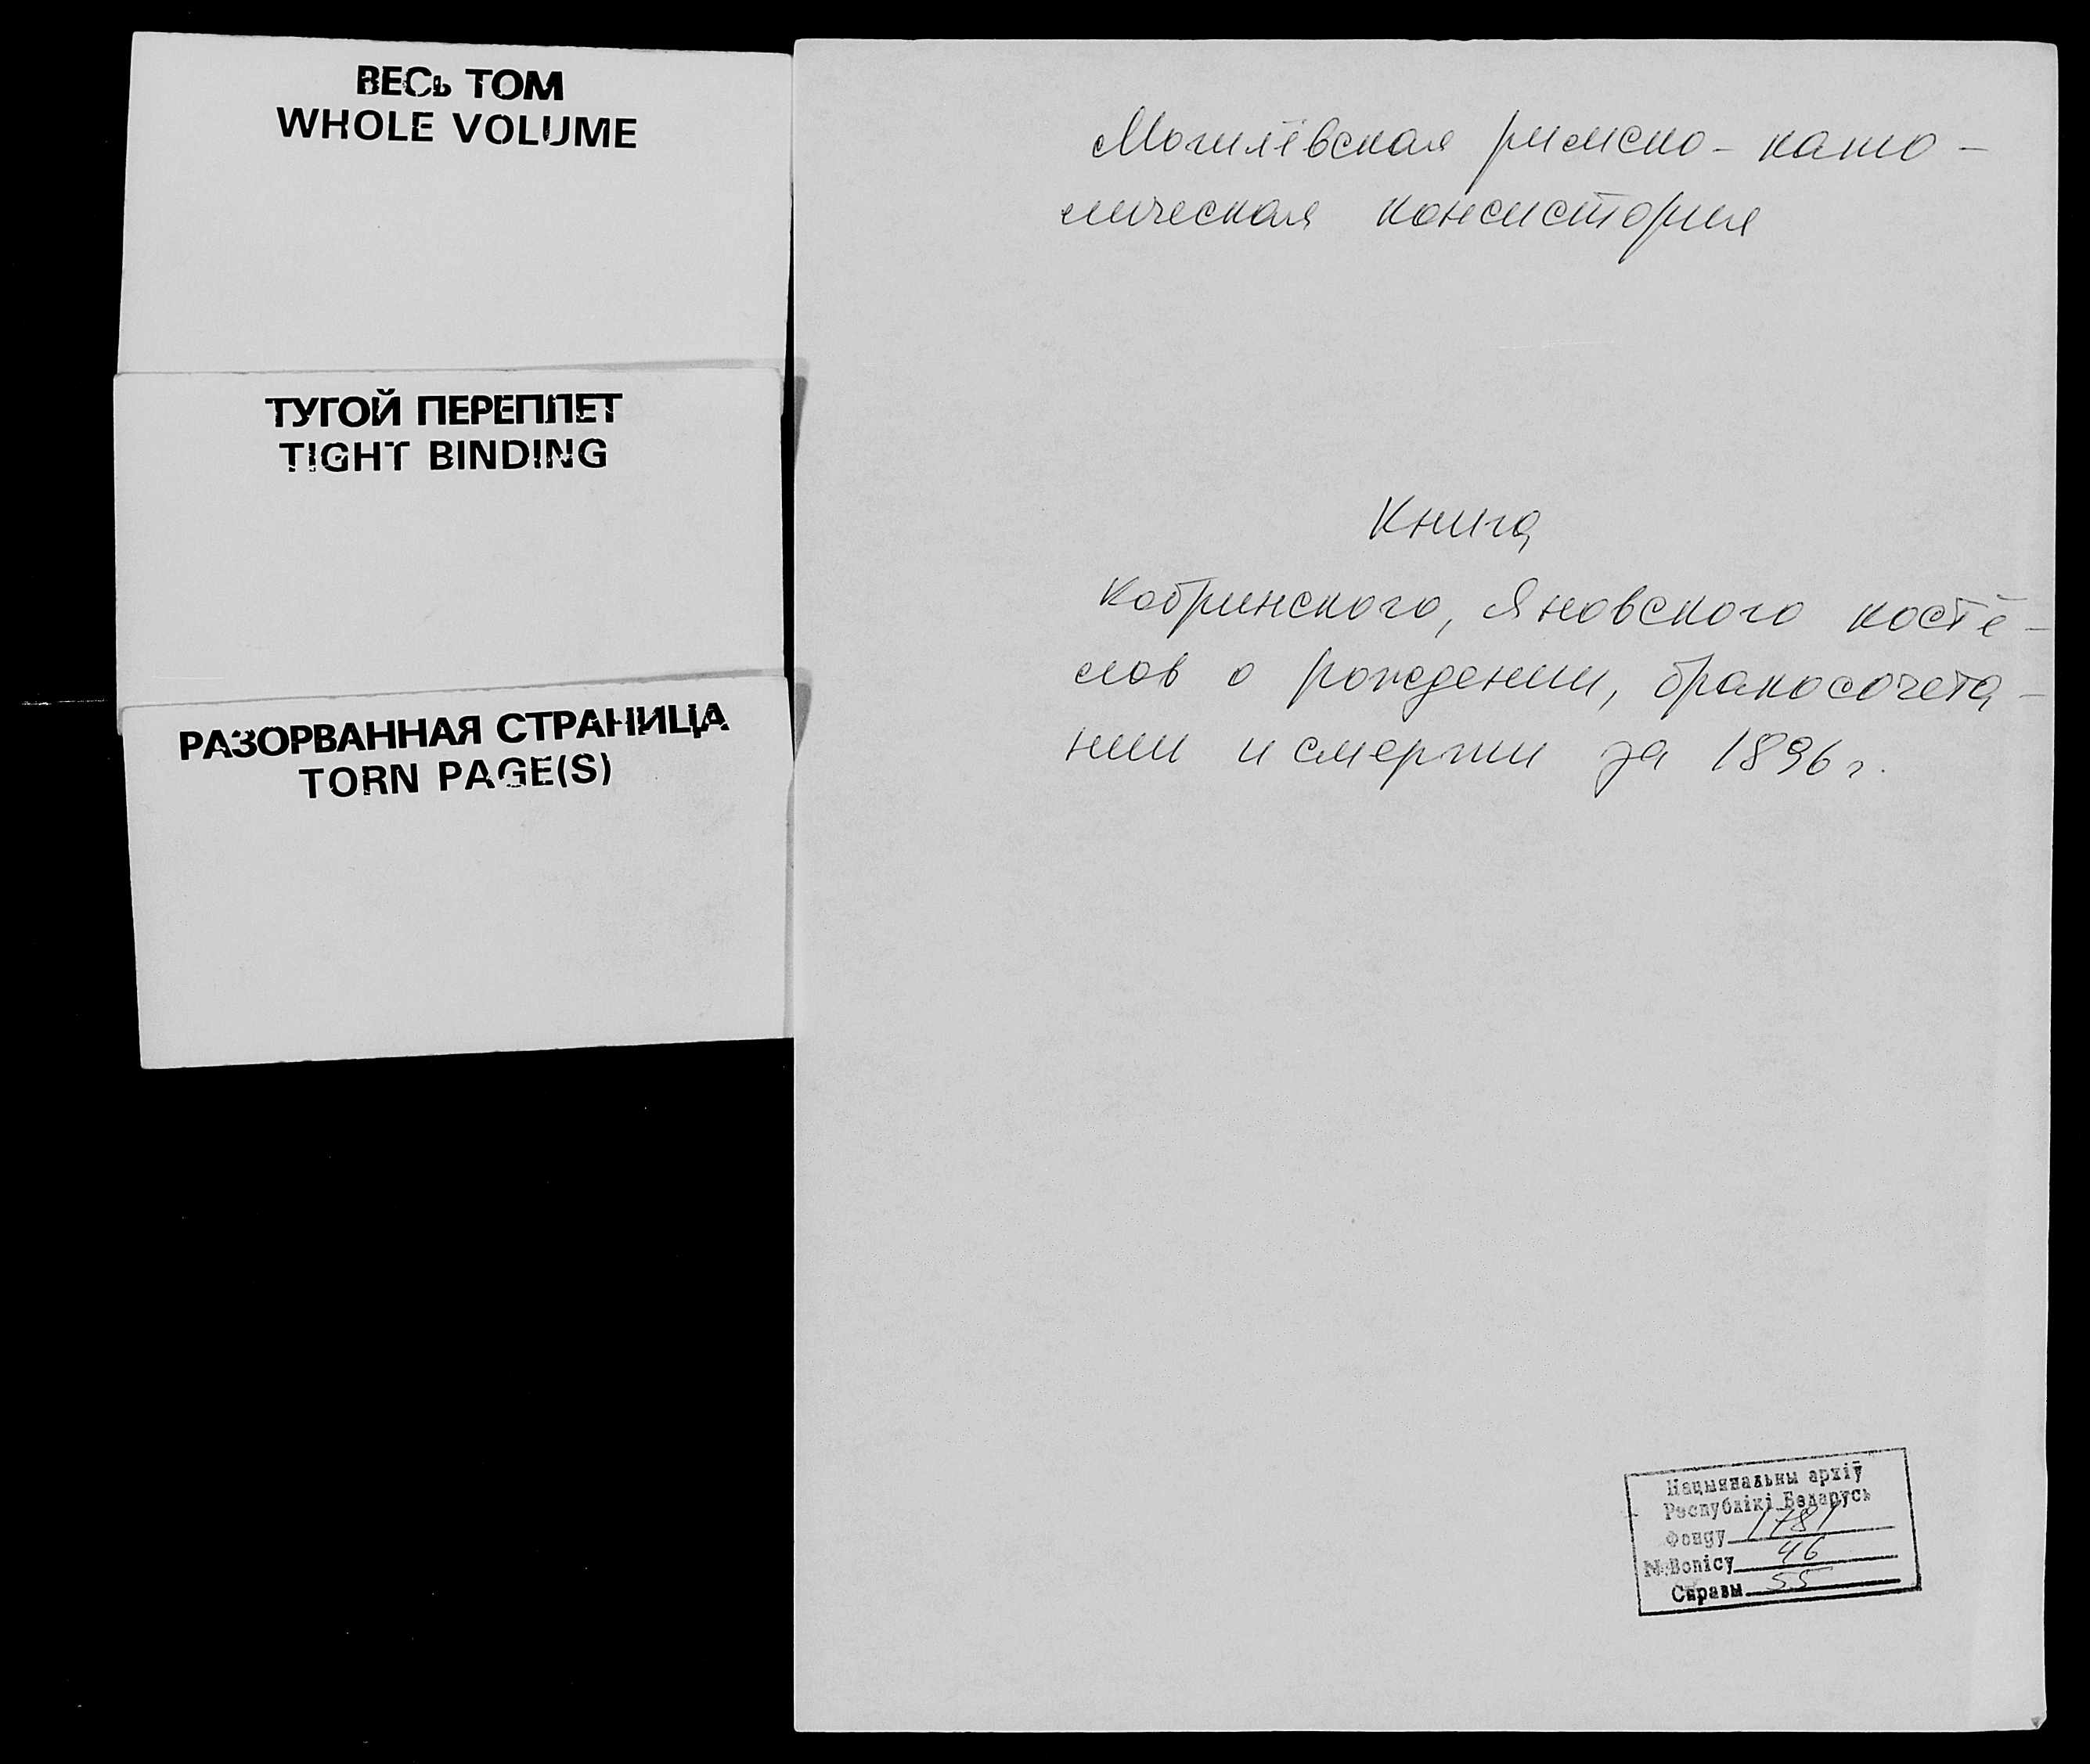 ВЕСЬ ТОМ
WHOLE VOLUME
ТУГОЙ ПЕРЕПЛЕТ
TIGHT BINDING
РАЗОРВАННАЯ СТРАНИЦА
TORN PAGE(S)
Могилёвская римско-като-
лическая консистория
Книга
Кобринского, Яновского костё-
лов о рождении, бракосочета-
нии и смерти за 1896 г.
Нацыянальны архіў
Рэспублікі Беларусь
Фонду 1781
№ Вопісу 46
Справы 55